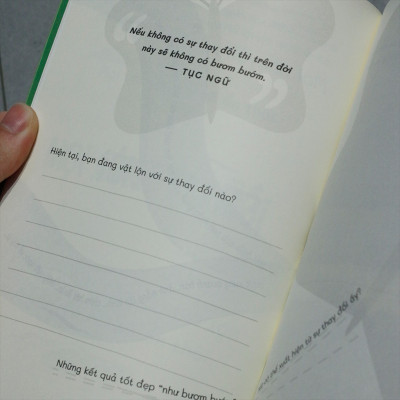 Nếu không có sự thay đổi thì trên đời
này sẽ không có bươm bướm.
— TỤC NGỮ
Hiện tại, bạn đang vật lộn với sự thay đổi nào?
Những kết quả tốt đẹp "như bươm
có thể xuất hiện từ sự thay đổi ấy?